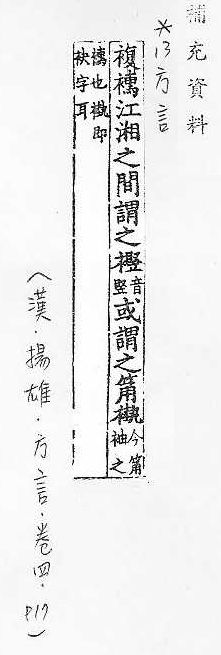 補充資料
*13方言
複襦江湘之間謂之音豎或謂之筩褹今筩袖之
襦也褹即袂字耳
(漢·揚雄·方言·卷四·P17)